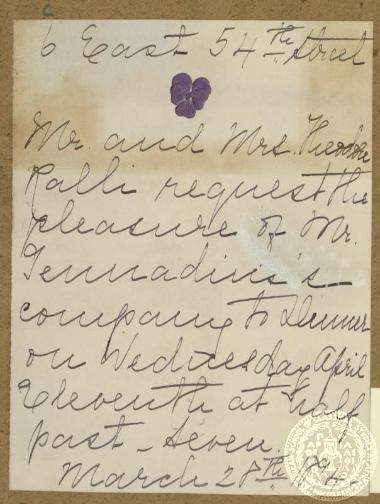 6 East 54th Street
Mr. and Mrs. Theodore
Ralli request the
pleasure of Mr.
Gennadius's
company to Dinner
on Wednesday April
Eleventh at half
past seven.
March 28th